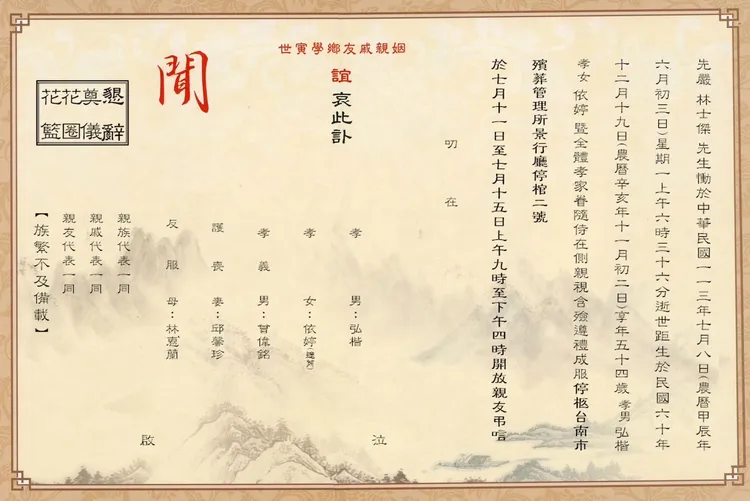 先嚴 林士傑 先生慟於中華民國一一三年七月八日(農曆甲辰年
六月初三日)星期一上午六時三十六分逝世距生於民國六十年
十二月十九日(農曆辛亥年十一月初二日)享年五十四歲 孝男 弘楷
孝女 依婷 暨全體孝家眷隨侍在側親視含殮遵禮成服停柩台南市
殯葬管理所景行廳停棺二號
於七月十一日至七月十五日上午九時至下午四時開放親友弔唁
叨在
姻親戚友鄉學寅世
誼 哀此訃
聞
孝男：弘楷
孝女：依婷
孝義男：甘偉銘
護喪妻：邱馨珍
反服母：林惠蘭
泣
啟
親族代表一同
親戚代表一同
親友代表一同
【族繁不及備載】
懇辭
奠儀
花圈
花籃